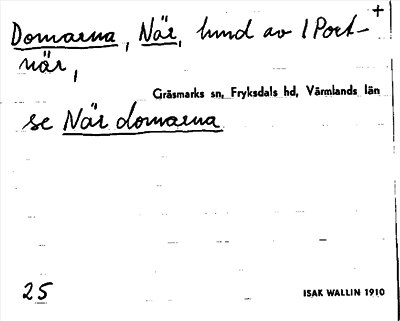 Domarna, När, hmd av 1 Port- +
när,
Gräsmarks sn, Fryksdals hd, Värmlands län
se När domarna
25
ISAK WALLIN 1910